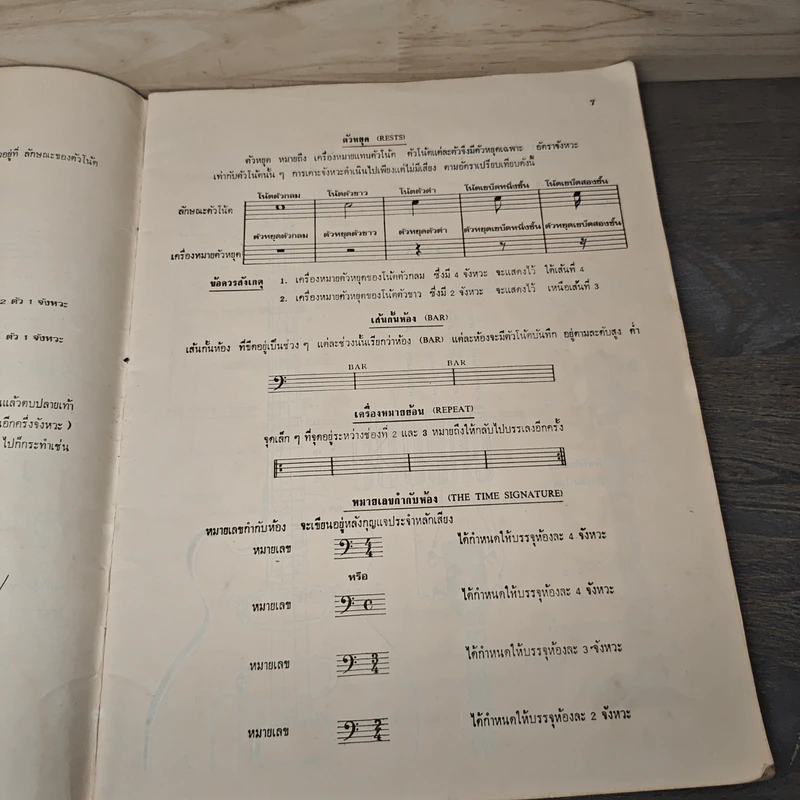 อยู่ที่ ลักษณะของตัวโน้ต
2 ตัว 1 จังหวะ
ตัว 1 จังหวะ
แล้วตบปลายเท้า
อีกครึ่งจังหวะ )
ไปก็กระทำเช่น
7
ตัวหยุด (RESTS)
ตัวหยุด หมายถึง เครื่องหมายแทนตัวโน้ต ตัวโน้ตแต่ละตัวจึงมีตัวหยุดเฉพาะ อัตราจังหวะ
เท่ากับตัวโน้ตนั้น ๆ การเคาะจังหวะดำเนินไปเพียงแต่ไม่มีเสียง ตามอัตราเปรียบเทียบดังนี้
โน้ตตัวกลม โน้ตตัวขาว โน้ตตัวดำ โน้ตเขบ็ตหนึ่งชั้น โน้ตเขบ็ตสองชั้น
ลักษณะตัวโน้ต
ตัวหยุดตัวกลม ตัวหยุดตัวขาว ตัวหยุดตัวดำ ตัวหยุดเขบ็ตหนึ่งชั้น ตัวหยุดเขบ็ตสองชั้น
เครื่องหมายตัวหยุด
ข้อควรสังเกตุ 1. เครื่องหมายตัวหยุดของโน้ตตัวกลม ซึ่งมี 4 จังหวะ จะแสดงไว้ ใต้เส้นที่ 4
2. เครื่องหมายตัวหยุดของโน้ตตัวขาว ซึ่งมี 2 จังหวะ จะแสดงไว้ เหนือเส้นที่ 3
เส้นกั้นห้อง (BAR)
เส้นกั้นห้อง ที่ขีดอยู่เป็นช่วง ๆ แต่ละช่วงนั้นเรียกว่าห้อง (BAR) แต่ละห้องจะมีตัวโน้ตบันทึก อยู่ตามระดับสูง ต่ำ
BAR BAR
เครื่องหมายย้อน (REPEAT)
จุดเล็ก ๆ ที่จุดอยู่ระหว่างช่องที่ 2 และ 3 หมายถึงให้กลับไปบรรเลงอีกครั้ง
หมายเลขกำกับห้อง (THE TIME SIGNATURE)
หมายเลขกำกับห้อง จะเขียนอยู่หลังกุญแจประจำหลักเสียง
หมายเลข 4 4 ได้กำหนดให้บรรจุห้องละ 4 จังหวะ
หรือ
หมายเลข C ได้กำหนดให้บรรจุห้องละ 4 จังหวะ
หมายเลข 3 4 ได้กำหนดให้บรรจุห้องละ 3 จังหวะ
หมายเลข 2 4 ได้กำหนดให้บรรจุห้องละ 2 จังหวะ